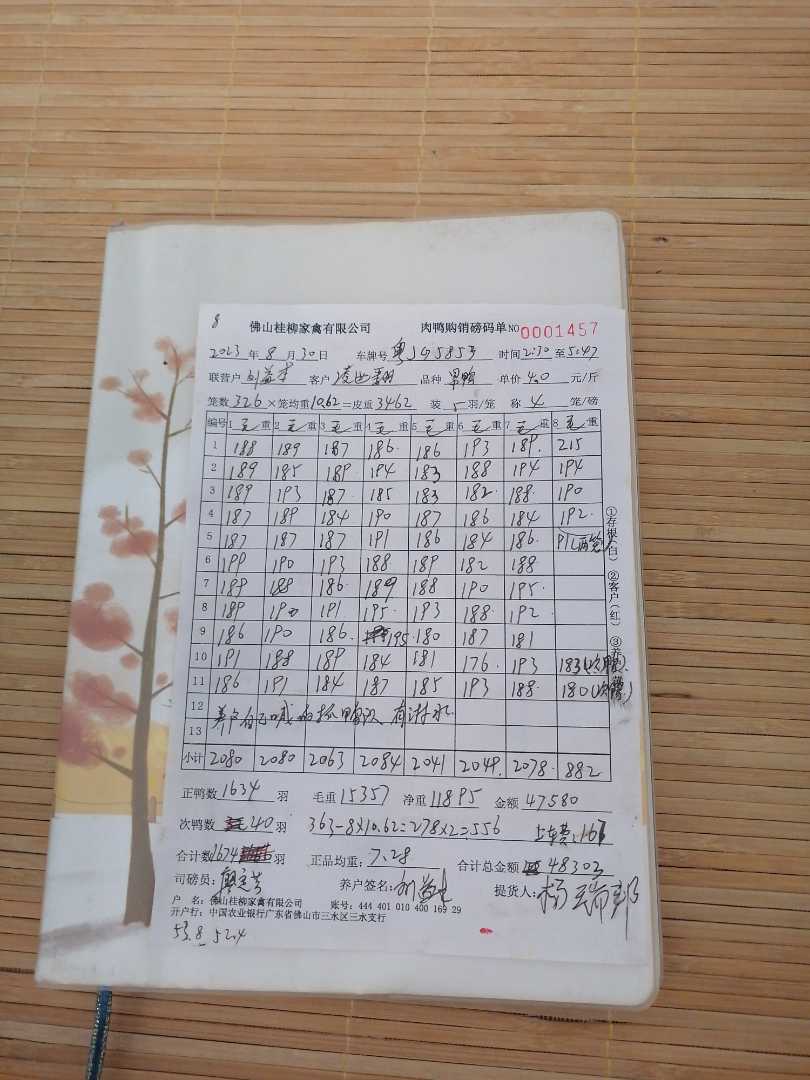 8
佛山桂柳家禽有限公司 肉鸭购销磅码单 NO 0001457
2023年8月30日 车牌号 粤J45853 时间2:30至5:47
联营户 客户 品种 单价 4.0 元/斤
笼数 326 ×笼均重10.62=皮重3462 装 5 羽/笼 称 4 笼/磅
编号 1毛重 2毛重 3毛重 4毛重 5毛重 6毛重 7毛重 8毛重
1 188 189 187 186 186 193 189 215
2 189 185 189 194 183 188 194 194
3 189 193 187 185 183 182 188 190
4 187 189 184 190 187 186 184 192
5 187 187 187 191 186 184 186 91(两笼)
6 199 190 193 188 189 182 188
7 189 188 186 189 188 190 195
8 189 190 191 195 193 188 192
9 186 190 186 195 180 187 181
10 191 188 189 184 181 176 193 183(次鸭)
11 186 191 184 187 185 193 188 180(次鸭)
12 养户自己喊的抓鸭队 有淋水
13
小计 2080 2080 2063 2084 2041 2049 2078 882
正鸭数 1634 羽 毛重 15357 净重 11895 金额 47580
次鸭数 40 羽 363-8×10.62=278×2=556 上车费:167
合计数 1674 羽 正品均重: 7.28 合计总金额 48303
司磅员: 养户签名: 提货人:
户 名: 佛山桂柳家禽有限公司 账号: 444 401 010 400 169 29
开户行: 中国农业银行广东省佛山市三水区三水支行
53.8 52.4
①存根(白) ②客户(红) ③养